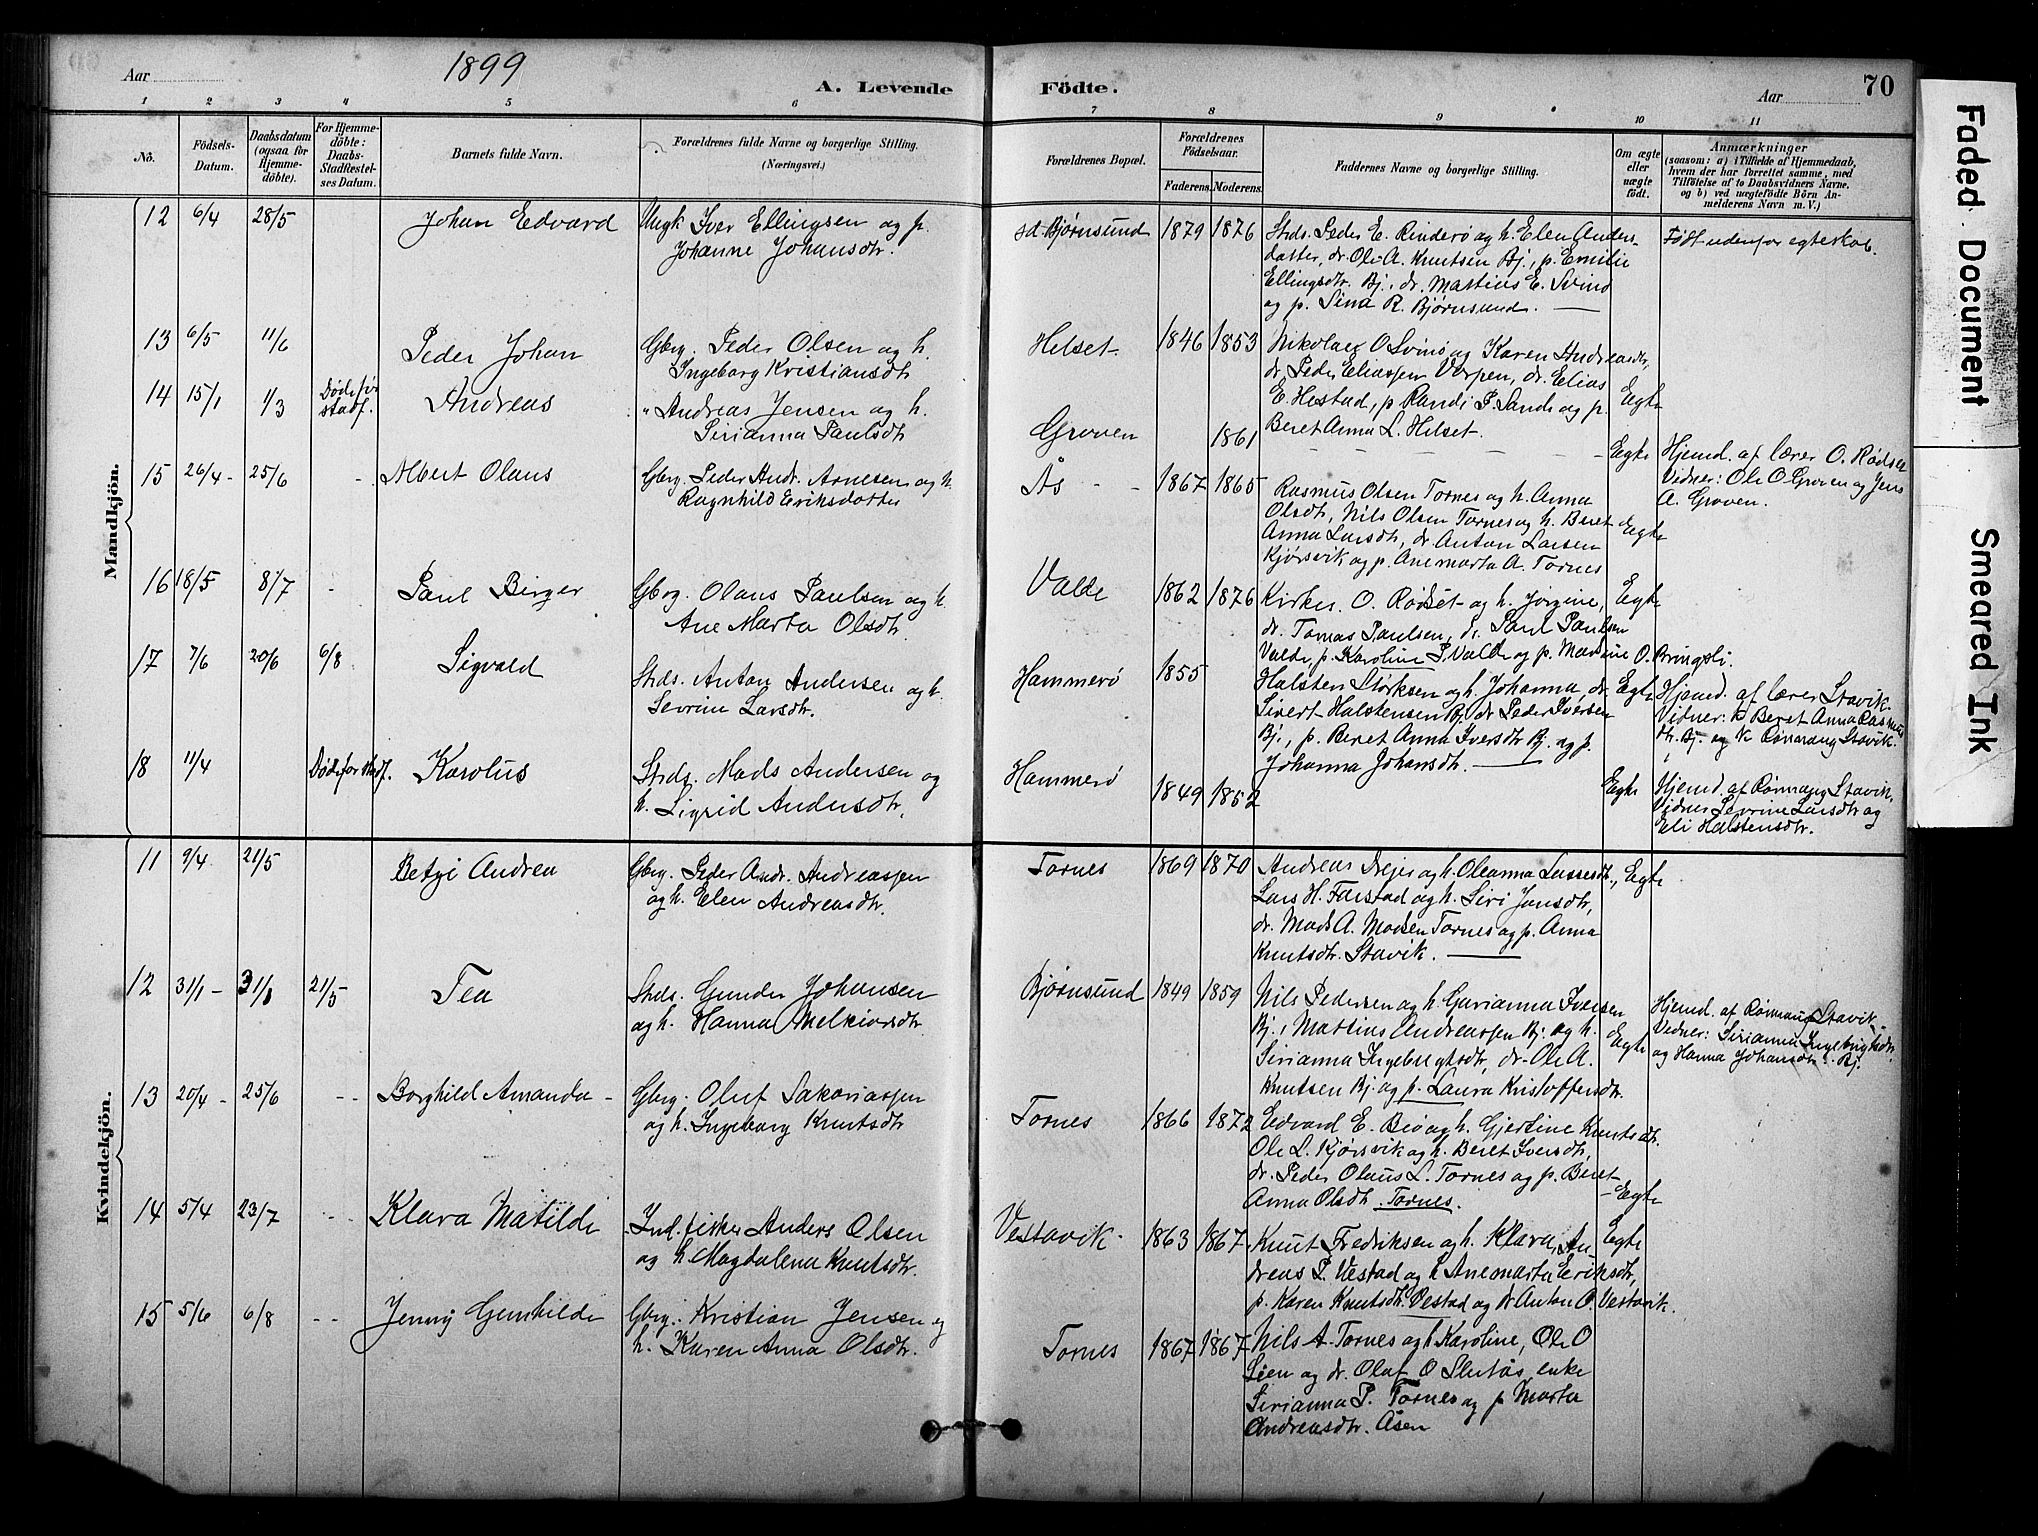 Aar 1899
A. Levende Födte.
Aar 70
1 2 3 4 5 6 7 8 9 10 11
No.
Födsels-Datum.
Daabsdatum (ogsaa for Hjemme-döbte).
For Hjemme-döbte: Daabs-Stadfæstel-ses Datum.
Barnets fulde Navn.
Forældrenes fulde Navne og borgerlige Stilling.
(Næringsvei.)
Forældrenes Bopæl.
Forældrenes Födselsaar.
Faderens. Moderens.
Faddernes Navne og borgerlige Stilling.
Om ægte eller uægte födt.
Anmærkninger
(saasom: a) i Tilfælde af Hjemmedaab,
hvem der har forrettet samme, med
Tilföielse af to Daabsvidners Navne.
og b) ved uægtefödte Börn An-
melderens Navn m. V.)
Mandkjön.
12 6/4 28/5 Johan Edvard
Ungk Iver Ellingsen og p.
Johanne Johansdtr.
Bjørnsund 1879 1876
Strds. Peder E. Rinderø og h. Elen Anders-
datter, dr. Ole A. Knutsen Bj., p. Emilie
Ellingsdtr. Bj., dr. Martius E. Svinø
og p. Sina R. Bjørnsund.
Født udenfor egteskab.
13 6/5 11/6 Peder Johan
Gbrg. Peder Olsen og h.
Ingeborg Kristiansdtr
Helset 1846 1853
Nikolai O Svinø og Karen Andreasdtr,
dr. Peder Eliassen Varpen, dr. Elias
E. Hestad, p Randi P. Sande og p.
Beret Anna L. Helset.
Egte
14 15/1 1/3 Døde før stadf. Andreas
" Andreas Jensen og h.
Sirianna Paulsdtr
Groven 1861
Egte
Hjemd. af lærer O. Rødset
Vidner: Ole O Groven og Jens
A. Groven.
15 26/4 - 25/6 - Albert Olaus
Gbrg. Peder Andr. Arnesen og h.
Ragnhild Eriksdatter
Ås 1867 1865
Rasmus Olsen Tornes og h. Anna
Olsdtr, Nils Olsen Tornes og h. Beret
Anna Larsdtr, dr. Anton Larsen
Kjørsvik og p. Anemarta A. Tornes
Egte
16 18/5 8/7 - Paul Birger
Gbrg. Olaus Paulsen og h.
Ane Marta Olsdtr.
Valde 1862 1876
Kirkes. O. Rødset og h. Jørgine,
dr. Tomas Paulsen, dr. Paul Paulsen
Valde, p. Karoline P. Valde og p. Marine O. Bringsli.
Egte
17 7/6 20/6 6/8 Sigvald
Strds. Anton Andersen og h.
Sevrine Larsdtr.
Hammerø 1855
Halsten Størksen og h. Johanna, dr.
Sivert Halstensen Bj, dr Peder Iversen
Bj., p. Beret Anna Iversdtr Bj. og p.
Johanna Johansdtr.
Egte
Hjemd. af lærer Stavik.
Vidner: k Beret Anna Rasmus
dtr. Bj. og k Rønnaug Stavik.
18 11/4 Døde for stadf. Karolus
Strds. Mads Andersen og
h. Sigrid Andersdtr.
Hammerø 1849 1852
Egte
Hjemd. af Rønnaug Stavik.
Vidner Sevrine Larsdtr og
Eli Halstensdtr.
Kvindekjön.
11 9/4 21/5 Betzi Andrea
Gbrg. Peder Andr. Andreassen
og h. Elen Andreasdtr.
Tornes 1869 1870
Andreas Drejer og h. Oleanna Lassesdtr.,
Lars H. Farstad og h. Siri Jonsdtr,
dr. Mads A. Madsen Tornes og p. Anna
Knutsdtr. Stavik.
Egte
12 31/1 - 31/1 21/5 Tea
Strds. Gunder Johansen
og h. Hanna Melkiorsdtr.
Bjørnsund 1849 1859
Nils Pedersen og h. Gurianna Iversen
Bj., Martins Andreassen Bj. og h.
Sirianna Ingebrigtsdtr, dr. Ole A.
Knutsen Bj. og p. Laura Kristoffersdtr.
Egte
Hjemd. af Rønnaug Stavik.
Vidner: Sirianna Ingebrigtsdtr.
og Hanna Johansdtr. Bj.
13 20/4 - 25/6 - - Borghild Amanda -
Gbrg. Oluf Sakariassen
og h. Ingeborg Knutsdtr
Tornes 1866 1872
Edvard E. Biø og h. Gjertine Knutsdtr.
Ole L. Kjørsvik og h. Beret Iversdtr,
dr. Peder Olaus L. Tornes og p. Beret
Anna Olsdtr. Tornes.
Egte
14 5/4 23/7 - - Klara Matilde
Ind. fisker Anders Olsen
og h. Magdalena Knutsdtr.
Vestavik 1863 1867
Knut Fredriksen og h. Klara, An-
dreas P. Vestad og h Anemarta Eriksdtr,
p. Karen Knutsdtr. Vestad og dr Anton O. Vestavik.
Egte
15 5/6 6/8 - - Jenny Gunhilde
Gbrg. Kristian Jensen og
h. Karen Anna Olsdtr.
Tornes 1867 1867
Nils A. Tornes og h Karoline, Ole O
Sien og dr. Oluf O Slutås, enke
Sirianna P. Tornes og p Marta
Andreasdtr. Åsen
Faded Document
Smeared Ink